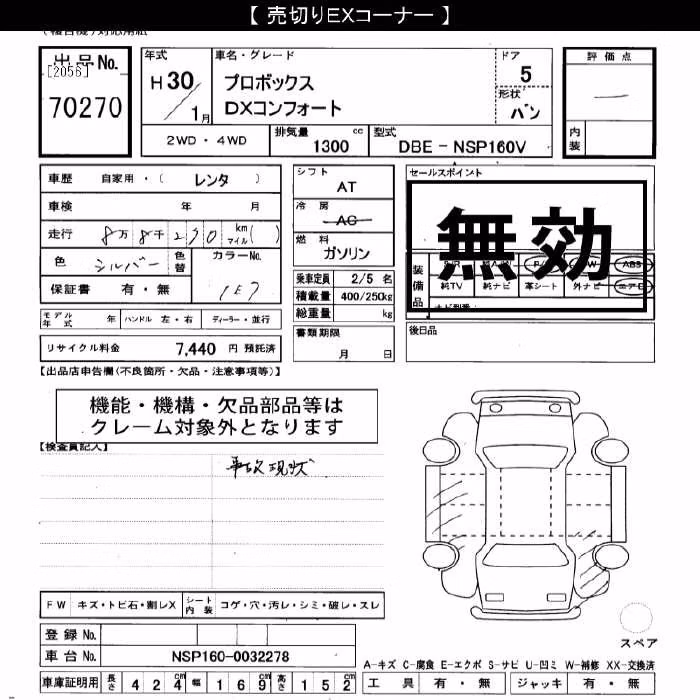 【 売切りEXコーナー 】
出品No.
[2056]
70270
年式
H30/1月
車名・グレード
プロボックス
DXコンフォート
ドア
5
形状
バン
評価点
内装
2WD・4WD
排気量
1300 cc
型式
DBE-NSP160V
車歴 自家用・( レンタ )
車検 年 月
走行 8万8千270 km マイル( )
色 シルバー
色替
カラーNo.
1E7
保証書 有・無
シフト
AT
冷房
AC
燃料
ガソリン
乗車定員 2/5 名
積載量 400/250kg
総重量 kg
書類期限
月 日
セールスポイント
無効
装備品
ABS
純TV 純ナビ 革シート 外ナビ エアB
後日品
モデル年式 年 ハンドル 左・右 ディーラー・並行
リサイクル料金 7,440 円 預託済
【出品店申告欄(不良箇所・欠品・注意事項等)】
機能・機構・欠品部品等は
クレーム対象外となります
【検査員記入】
事故現状
FW キズ・トビ石・割レX シート内装 コゲ・穴・汚レ・シミ・破レ・スレ
登録No.
車台No. NSP160-0032278
車庫証明用 長さ 424cm 幅 169cm 高さ 152cm
スペア
A-キズ C-腐食 E-エクボ S-サビ U-凹ミ W-補修 XX-交換済
工具 有・無 ジャッキ 有・無